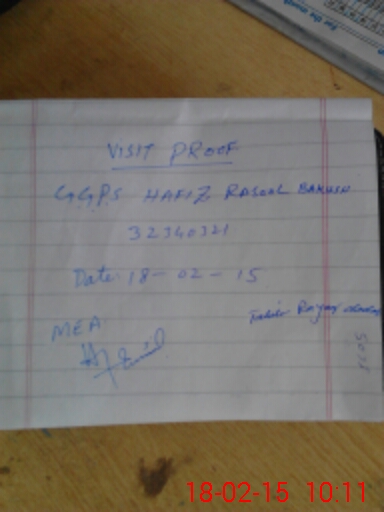 For the month
VISIT PROOF
GGPS HAFIZ RASOOL BAKHSH
32340321
Date: 18-02-15
MEA
18-02-15 10:11